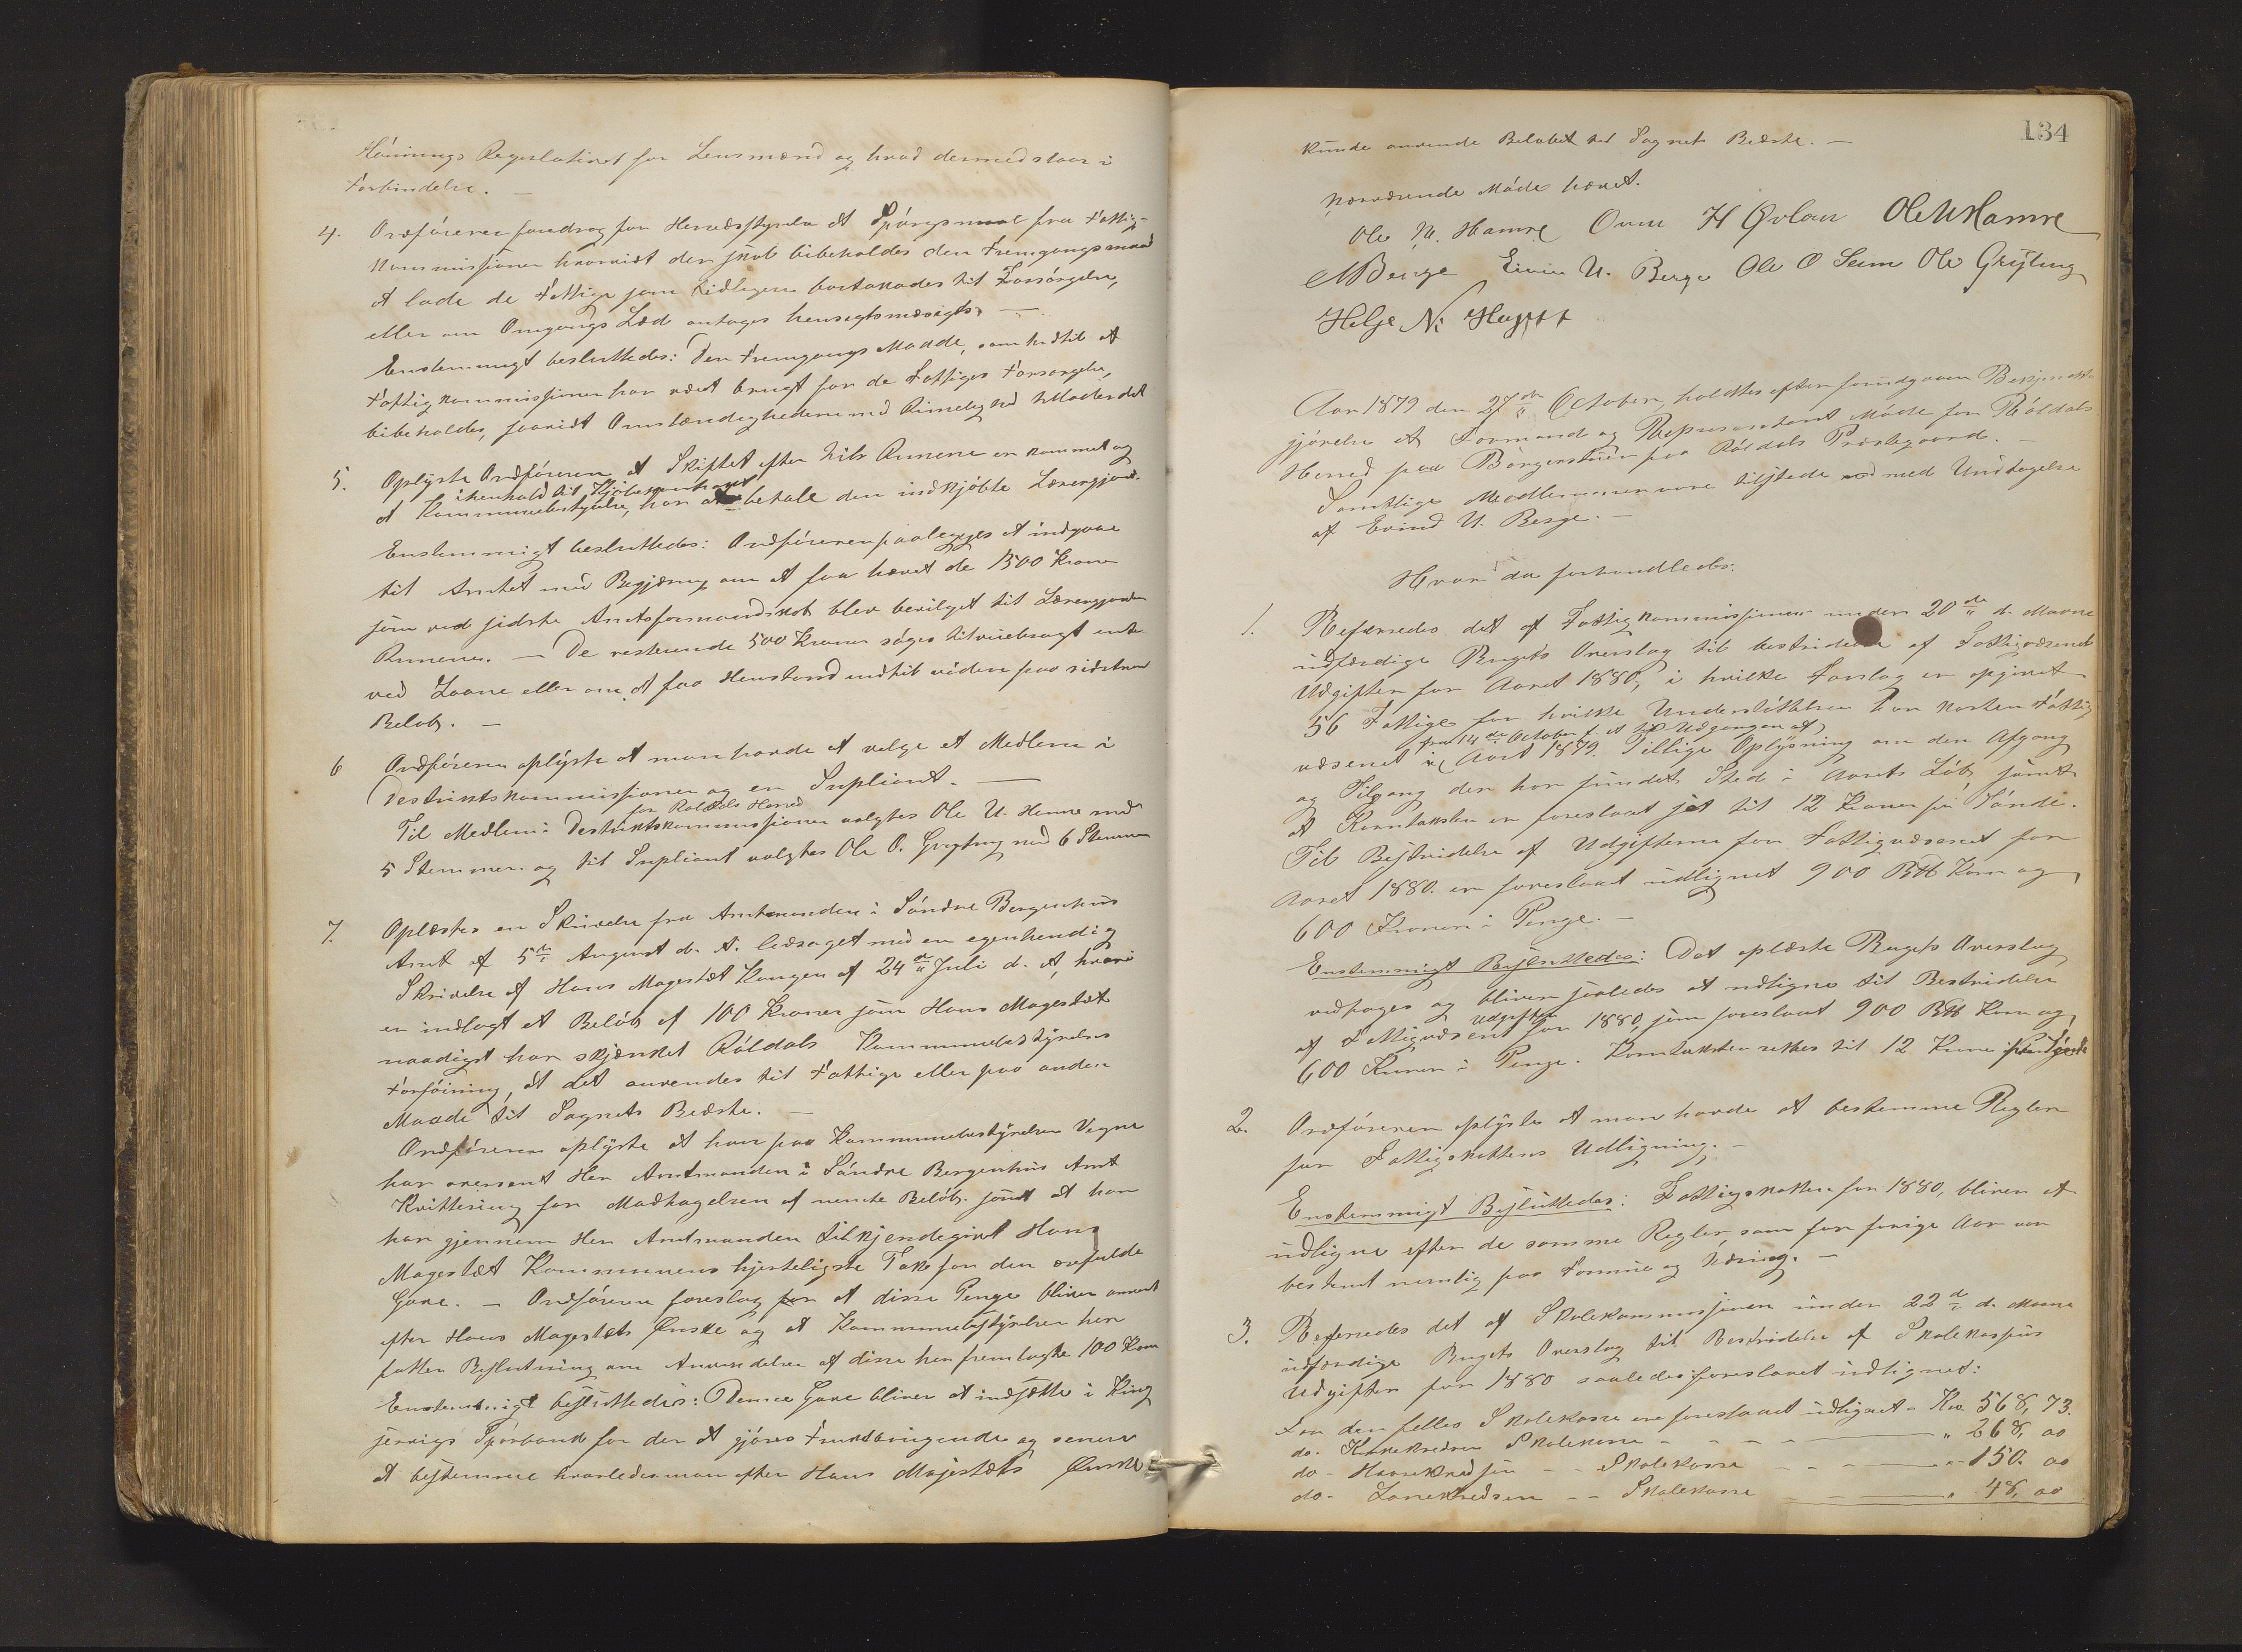 Lönnings Regulativet for Lensmænd og hvad dermed staar i
Forbindelse. —
4. Ordföreren foredrog for Herredsstyrelse et Spörgsmaal fra Fattig-
kommissjonen hvorvidt der skal bibeholdes den Fremgangsmaade
at lade de Fattige som tidligere bortakordes til Forsörgelse,
eller om Omgangs Læd antages hensigtsmæsigts. —
Enstemmigt besluttedes: Den Fremgangs Maade, som hidtil af
Fattigkommissjonen har været brugt for de Fattiges Forsörgelse,
bibeholdes, saavidt Omstændighederne med Rimelighed tillader det
5. Oplyste Ordföreren at Skiftet efter Nils Rinnene er kommet og
i henhold til Kjöbekontraget
at Kommunebestyrelse, har at betale den indkjöbte Lærergjord.
Enstemmigt besluttedes: Ordföreren paalegges at indgaae
til Amtet med Begjæring om at faa hævet de 1500 Kroner
som ved sidste Amtsformandskab blev bevilget til Lærergjorden
Rinnene. — De resterende 500 Kroner söges tilveiebragt enten
ved Laane eller om at faa Henstand indtil videre paa sidstnævnte
Belöb. —
6 Ordföreren oplyste at man havde at velge et Medlem i
Destriktskommissjonen og en Supliant. —
for Röldals Herred
Til Medlem i Destriktskommissjonen valgtes Ole U. Hamre med
5 Stemmer. og til Supliant valgtes Ole O. Grytting med 6 Stemmer
7. Oplæstes en Skrivelse fra Amtmanden i Söndre Bergenhus
Amt af 5te August d. A. ledsaget med en egenhendig
Skrivelse af Hans Magestæt Kongen af 24de Juli d. A, hvori
er indlagt et Belöb af 100 Kroner som Hans Magestæt
naadigst har skjænket Röldals Kommunebestyrelses
Forföining, at det anvendes til Fattige eller paa anden
Maade til Sognets Bedste. —
Ordföreren oplyste at han paa Kommunebestyrelsen Vegne
har oversent Herr Amtmanden i Söndre Bergenhus Amt
Kvittering for Modtagelsen af nevnte Belöb. samt at han
har gjennem Herr Amtmanden tilkjendegivet Hans
Magestæt Kommunens hjerteligste Tak for den ærefulde
Gave. — Ordföreren foreslog for at disse Penge bliver anvent
efter Hans Magestæts Ønske og at Kommunebestyrelsen her
fatter Beslutning om Anvendelsen af disse her fremlagte 100 Kroner
Enstemmigt besluttedes: Denne Gave bliver at indsætte i
Sparbank for der at gjöres Frugtbringende og senere
at bestemme hvorledes man efter Hans Majestæts Ønske
134
kunde anvende Belöbet ved Sognets Bedste. —
Nærværende Möde hævet.
Ole N. Hamre H Øvlan Ole U Hamre
NBerge Eivin U. Berge Ole O Seim Ole Grytting
Helge N.
Aar 1879 den 27de October, holdtes efter foregaaen Bekjendt-
gjörelse et Formand og Representant Möde for Röldals
Herred paa Borgerstuen paa Röldals Præstegaard. —
Samtlige Medlemmer vare tilstede med Undtagelse
af Eivind U. Berge. —
Hvor da forhandledes:
1. Refereredes det af Fattigkommissjonen under 20de d. Maane
udfærdige Bugets Overslag til bestridelse af Fattigvæsenets
Udgifter for Aaret 1880, i hvilke Forslag er opgivet
56 Fattige for hvilke Understöttelsen
fra 14de October til Udgangen af
væsenet i Aaret 1879. Tillige Oplysning om den Afgang
og Tilgang der har fundet Sted i Aarets Löb, samt
at Korntaksten er foreslaaet sat til 12 Kroner pr Tönde.
Til Bestridelse af Udgifterne for Fattigvæsenet for
Aaret 1880. er foreslaaet udlignet 900 B℔ Korn og
600 Kroner i Penge. —
Enstemmigt Besluttedes: Det oplæste Bugets Overslag
vedtages og bliver saaledes at udligne til Bestridelse
Udgifter
af Fattigvæsent for 1880, som foreslaaet 900 B℔ Korn og
600 Kroner i Penge. Korntaksten settes til 12 Krone pr Tönde
2. Ordföreren oplyste at man havde at bestemme Regler
for Fattigskattens Udligning. —
Enstemmigt Besluttedes: Fattigskatten for 1880, bliver at
udligne efter de samme Regler som for forige Aar var
bestemt nemlig paa Formue og Næring. —
3. Refereredes det af Skolekommissjonen under 22de d. Maane
udfærdige Bugets Overslag til Bestridelse af Skolekassens
Udgifter for 1880 saaledes foreslaaet udlignet:
For den felles Skolekasse ere foreslaaet udlignet - Kr. 568, 73.
do. Skolekasse - - - - " 268, 00
do - Haarekredsen - - Skolekasse - - - " 150. 00
do - - - Skolekasse - - " 48, 00